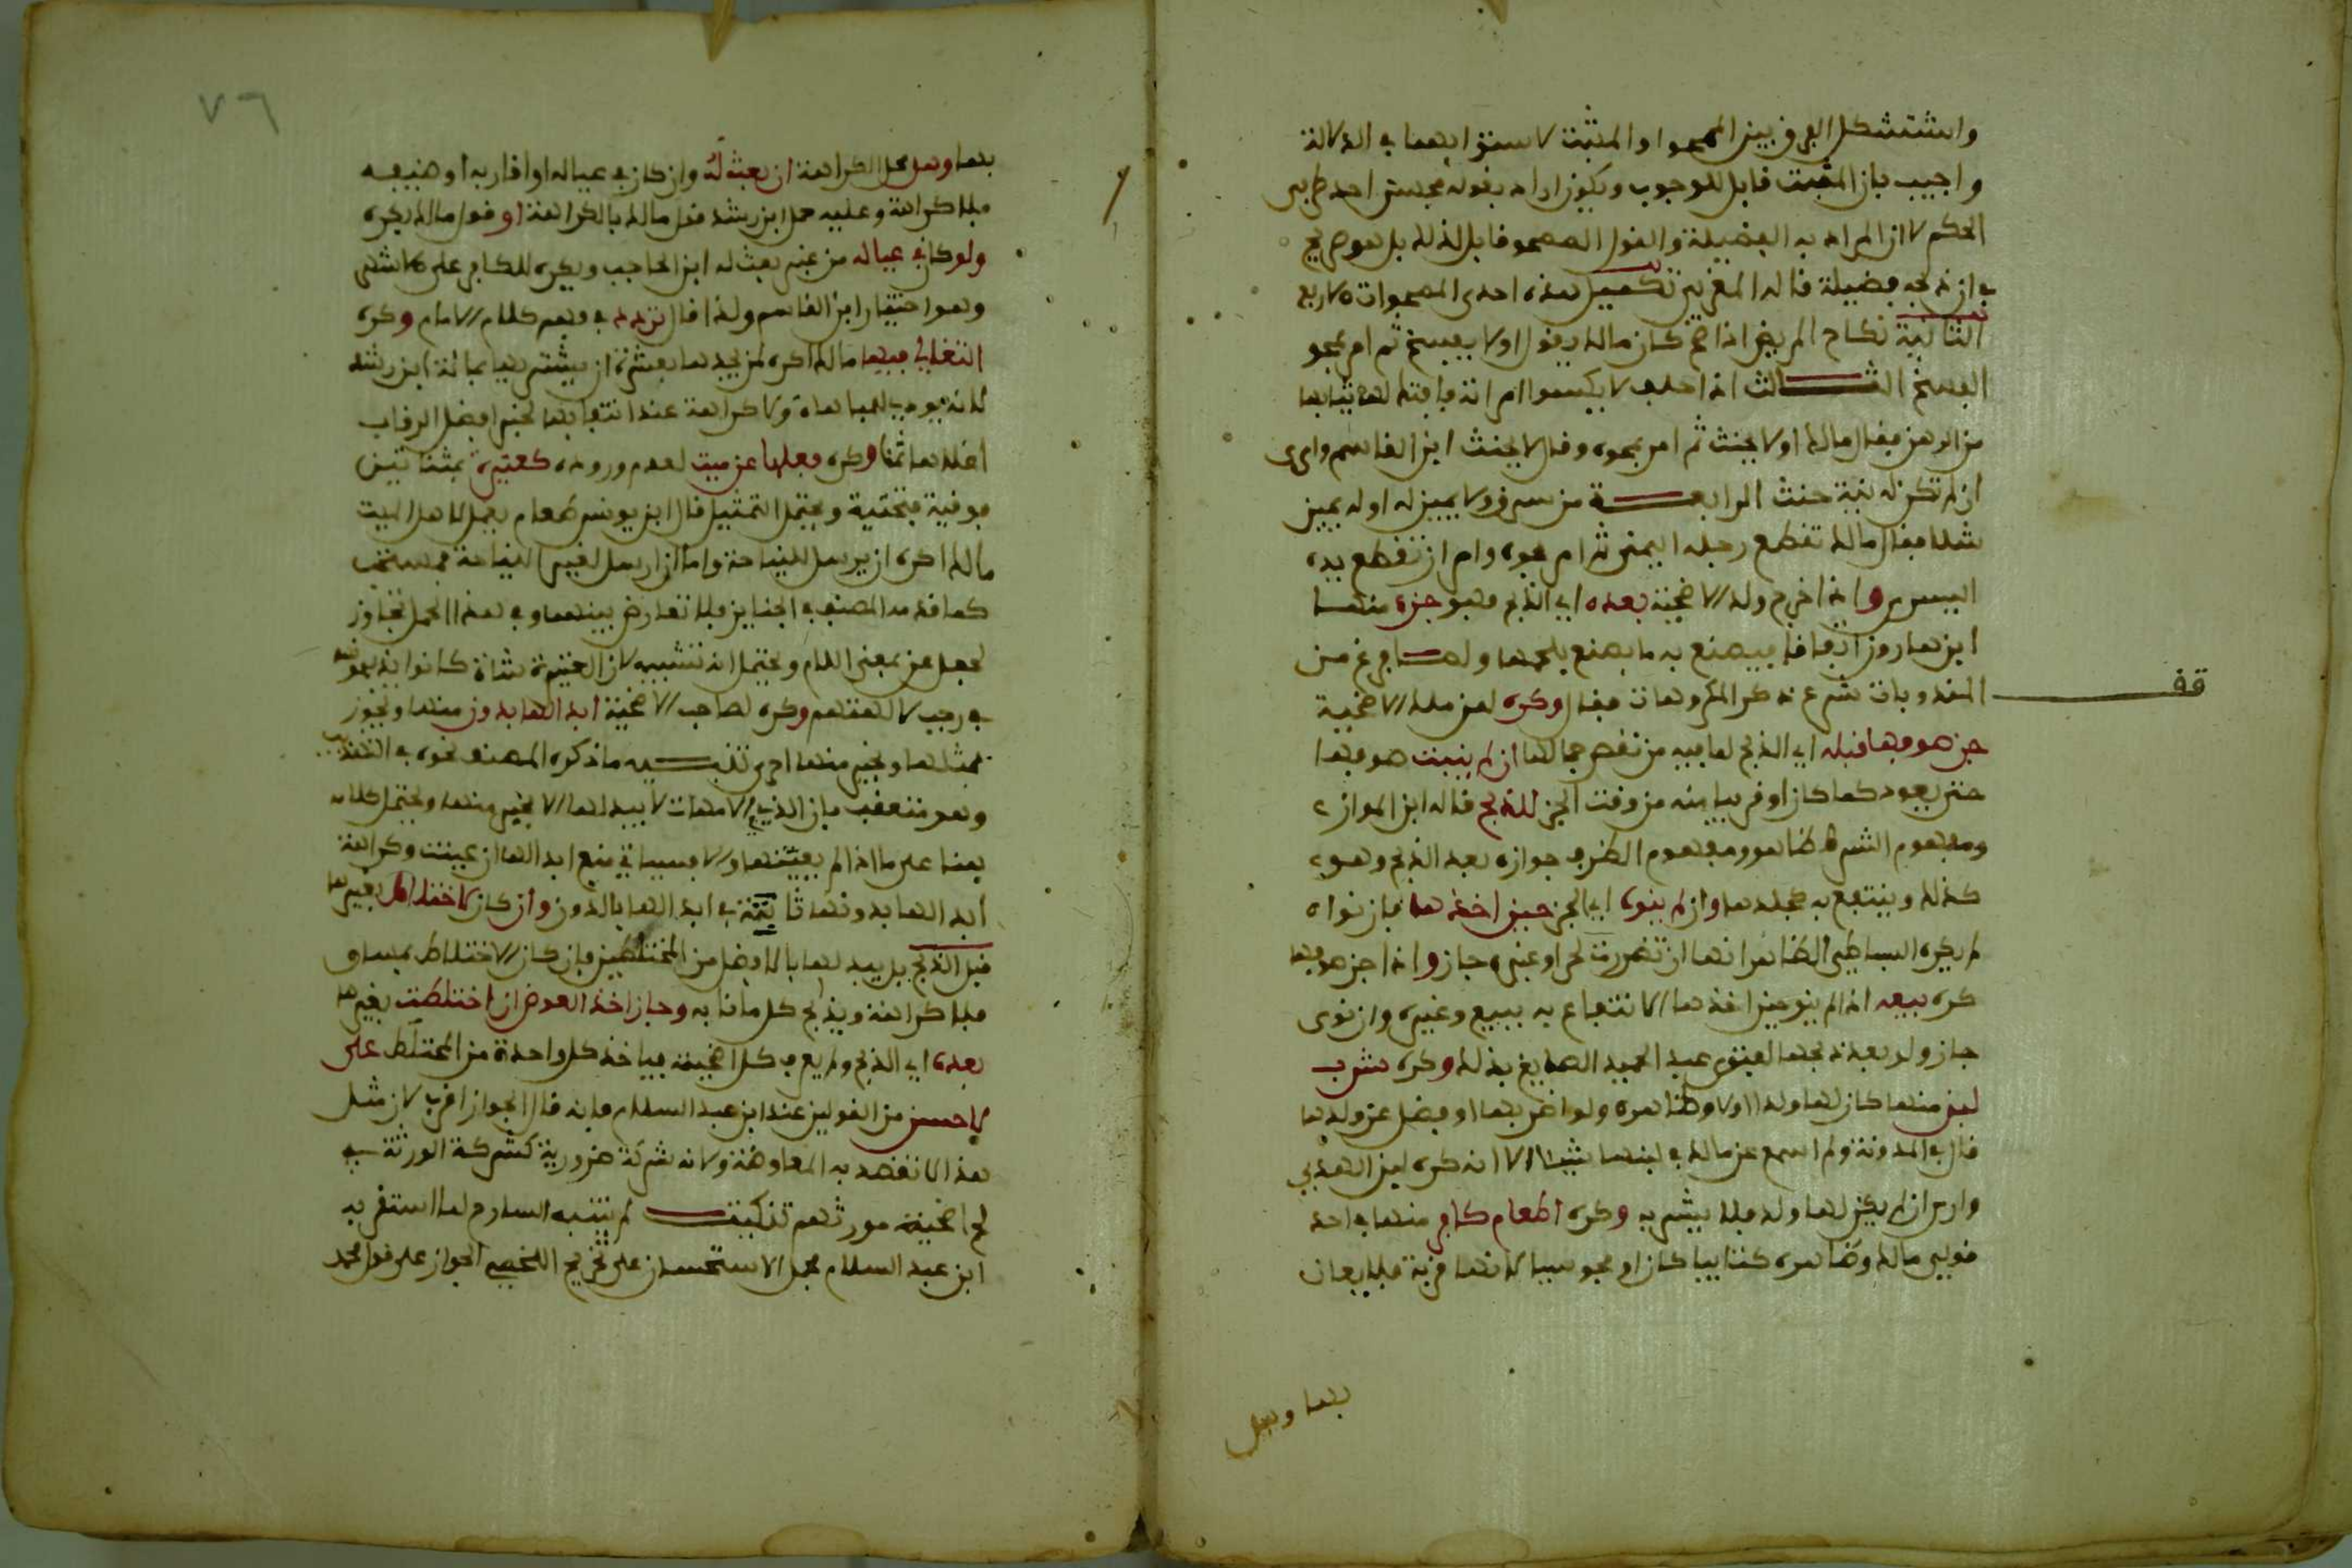 واستشكل الفرق بين الممحو او المثبت لاستوائهما في الدلالة
واجيب بان المثبت قابل للوجوب ويكون اراد بقوله فحسن احد ضربي
الحكم لا ان المراد به الفضيلة والقول الممحو قابل لذلك بل هو صريح
في ان ذبحه فضيلة قاله المغربي تكميل هذه احدى الممحوات الاربع
الثانية نكاح المريض اذا صح كان مالك يقول اولا يفسخ ثم امر بمحو
الفسخ الثالث اذا حلف لا يكسوا امراته فافتك لها ثيابها
من الرهن فقال مالك اولا يحنث ثم امر بمحوه وقال لا يحنث ابن القاسم وارى
ان لم تكن له نية حنث الرابعة من سرق ولا يمين له او له يمين
شلا فقال مالك تقطع رجله اليمنى ثم امر بمحوه وامر ان تقطع يده
اليسرى واذا خرج ولد الاضحية بعده اي الذبح فهو جزء منها
ابن هارون اتفاقا فيصنع به ما يصنع بلحمها ولما فرغ من
المندوبات شرع في ذكر المكروهات فقال وكره لمن ملك الاضحية
جز صوفها قبله اي الذبح لما فيه من نقص جمالها ان لم ينبت صوفها
حتى يعود كما كان او قريبا منه من وقت الجز للذبح قاله ابن المواز
ومفهوم الشرط ظاهر ومفهوم الظرف جوازه بعد الذبح وهو
كذلك وينتفع به كجلدها وان لم ينوه اي الجز حين اخذها فان نواه
لم يكره البساطي الظاهر انها ان تضررت لحر او غيره جاز واذا جز صوفها
كره بيعه اذا لم ينو حين اخذها الانتفاع به ببيع وغيره وان نوى
جاز ولو بعد ذبحها لفتوى عبد الحميد الصايغ بذلك وكره شرب
لبن منها كان لها ولد او لا وظاهره ولو اضر بها او فضل عن ولدها
قال في المدونة ولم اسمع عن مالك في لبنها شيئا الا انه كره لبن الهدي
وارى ان لم يكن لها ولد فلا يشربه وكره اطعام كافر منها في احد
قولي مالك وظاهره كتابيا كان او مجوسيا لانها قربة فلا يعان
قف
بها وهل
٧٦
بها وهل محل الكراهة ان بعث له وان كان في عياله او اقاربه او ضيفه
فلا كراهة وعليه حمل ابن رشد قول مالك بالكراهة او قول مالك يكره
ولو كان في عياله من غير بعث له ابن الحاجب ويكره للكافر على الاشهر
وهو اختيار ابن القاسم ولذا قال تردد في فهم كلام الامام وكره
التغالي فيها مالك اكره لمن يجدها بعشرة ان يشتريها بمائة ابن رشد
لانه يودي للمباهاة ولا كراهة عند انتفائها لخبر افضل الرقاب
اغلاها ثمنا وكره فعلها عن ميت لعدم وروده كعتيرة بمثناتين
فوقية فتحتية ويحتمل التمثيل قال ابن يونس طعام يعمل لاهل الميت
مالك اكره ان يرسل للنياحة واما ان ارسل لغير النياحة فمستحب
كما قدمه المصنف في الجنايز فلا تعارض بينهما وفي هذا الحمل تجاوز
لجعل عن بمعنى اللام ويحتمل انه تشبيه لان العتيرة شاة كانوا يذبحونها
في رجب لالهتهم وكره لصاحب الاضحية ابدالها بدون منها ويجوز
بمثلها وبخير منها احرى تنبيه ما ذكره المصنف نحوه في التهذيب
وهو متعقب بان الذي في الامهات لا يبدلها الا بخير منها ويحتمل كلامه
هنا على ما اذا لم يعينها والا فسياتي منع ابدالها ان عينت وكراهة
ابدالها بدونها ثابتة في ابدالها بالدون وان كان لاختلاط بغيرها
قبل الذبح بل يبدلها بالافضل من المختلطين فان كان الاختلاط بمساو
فلا كراهة ويذبح كل ما نابه وجاز اخذ العوض ان اختلطت بغيرها
بعده اي الذبح ولم يعرف كل اضحيته فياخذ كل واحدة من المختلط على
الاحسن من القولين عند ابن عبد السلام فانه قال الجواز اقرب لان مثل
هذا لا تقصد به المعاوضة ولانه شركة ضرورية كشركة الورثة في
لحم اضحية مورثهم تنكيت لم يتنبه الشارح لما استقر به
ابن عبد السلام فحمل الاستحسان على تخريج اللخمي الجواز على قول محمد